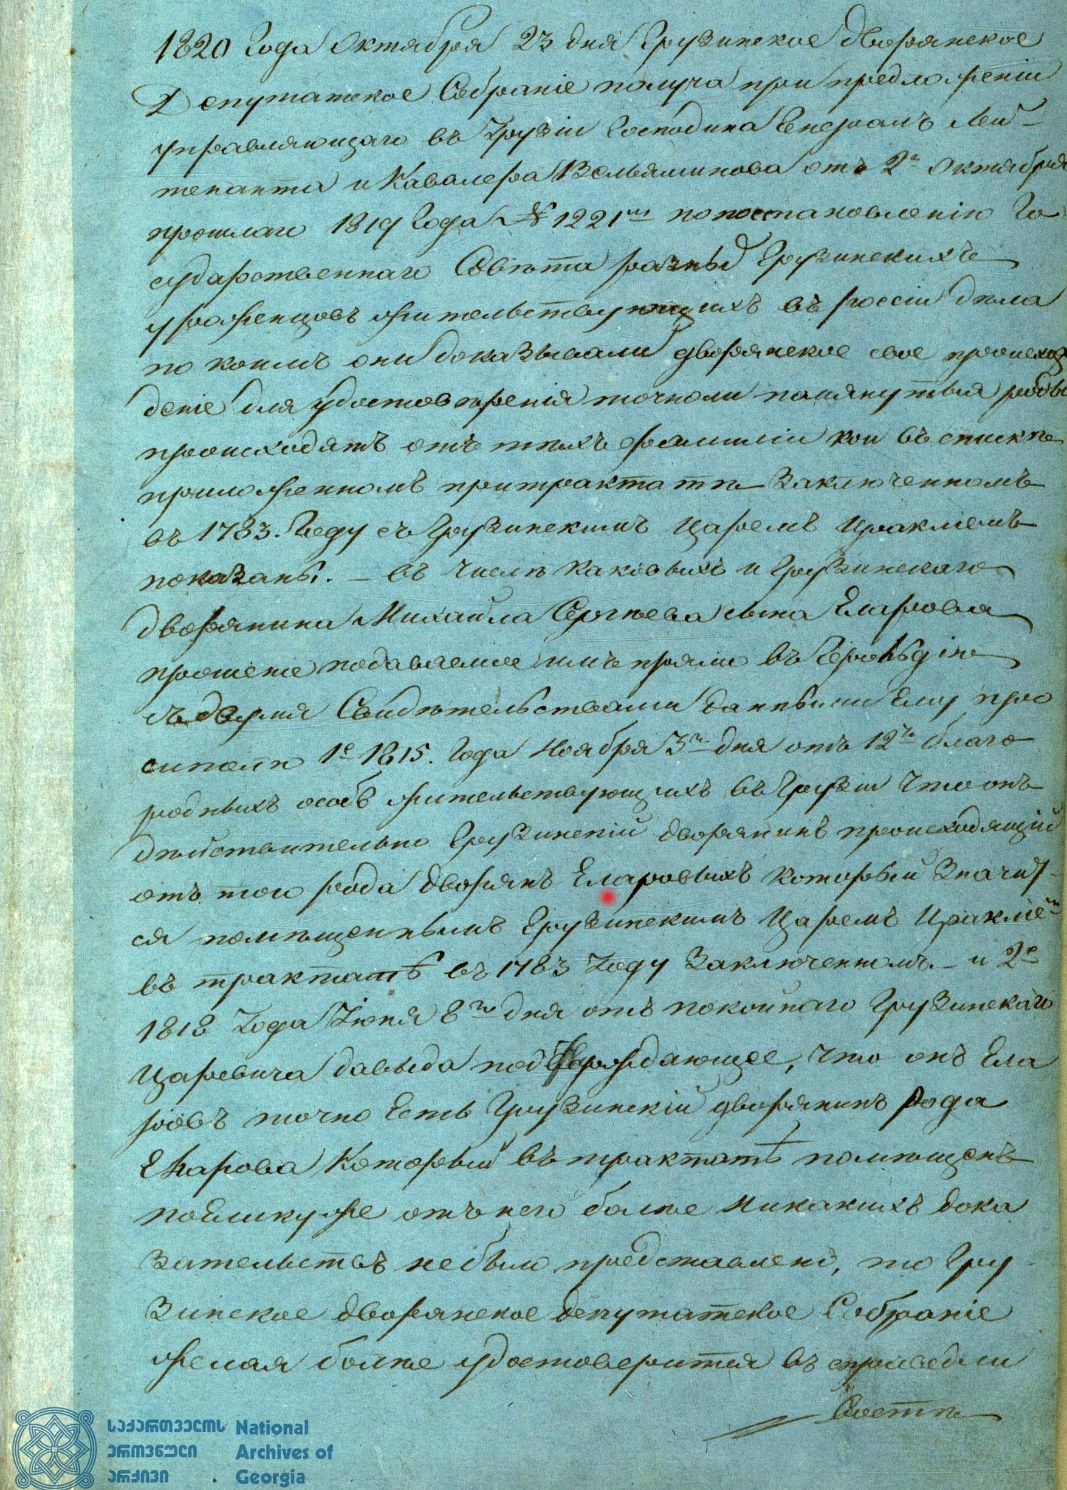 1820 Года Октября 23 дня Грузинское дворянское
Депутатское Собраніе получа при предложеніи
управляющаго въ Грузіи Господина Генералъ Лей-
тенанта и Кавалера Вельяминова отъ 2го Октября
прошлаго 1819 Года № 1221мъ попостановленію Го
сударственнаго Совѣта разныхъ Грузинскихъ
уроженцовъ жительствующихъ въ россіи дѣла
по коимъ они доказывали дворянское свое происхож
деніе для удостовѣренія точноли помянутыя роды
происходятъ отъ тѣхъ фамиліи кои въ спискѣ
приложенномъ притрактатѣ заключенномъ
въ 1783. Году съ Грузинскимъ Царемъ Иракліемъ
показаны. — въ числѣ каковыхъ и Грузинскаго
дворянина Михайла Сергѣева сына Еларова
прошеніе подаваемое имъ прямо въ Герольдію
съ двумя Свидѣтельствами данными Ему про
сителю 1е 1815. Года Ноября 3го дня отъ 12ти благо
родныхъ особъ жительствующихъ въ Грузіи что онъ
дѣйствительно Грузинскій дворянинъ происходящій
отъ того рода дворянъ Еларовыхъ который значит-
ся помѣщеннымъ Грузинскимъ Царемъ Ираклiемъ
въ трактатѣ въ 1783 Году заключенномъ — и 2е
1818 Года Іюня 8го дня отъ покойнаго Грузинскаго
Царевича давыда подтверждающее, что онъ Ела
ровъ точно Есть Грузинскій дворянинъ рода
Еларова который въ трактатѣ помѣщенъ
поЕлику же отъ него болѣе никакихъ дока
зательствъ небыло представлено, то Гру
зинское дворянское депутатское Собраніе
желая болѣе удостоверится въ справедли
востѣ
საქართველოს National
ეროვნული Archives of
არქივი Georgia